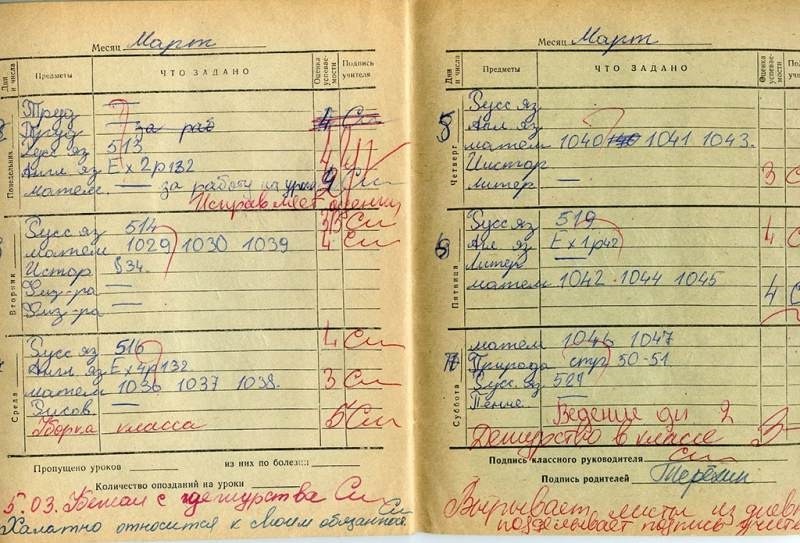 Месяц Март
Дни и числа Предметы ЧТО ЗАДАНО Оценка успевае-мости Подпись учителя
Понедельник
Труд —
Труд — за раб 4 См
Русс яз 513 4
Англ яз Ex 2 p 132
матем — за работу на уроке 2 См
Исправляет оценки
Вторник
Русс яз 514 3/3 См
матем 1029 1030 1039 4 См
Истор §34.
Физ-ра —
Физ-ра —
Среда
Русс яз 516 4 См
Англ. яз Ex 4 p 132
матем 1036 1037 1038. 3 См
Рисов. —
Уборка класса 5 См
Пропущено уроков из них по болезни
Количество опозданий на уроки
5.03. Бежал с дежурства См
Халатно относится к своим обязанност См
Месяц Март
Дни и числа Предметы ЧТО ЗАДАНО Оценка успевае-мости
Четверг 5
Русс яз
Анл яз
матем 1040 1041 1043.
Истор
литер — 3 С
Пятница 6
Русс яз 519 4 С
Анл яз Ex 1 p 42
Литер —
матем 1042 1044 1045 4 С
Суббота 7
матем 1046 1047
Природа стр 50-51
Русс яз 521
Пение —
Ведение дн 2
Дежурство в классе 3-
Подпись классного руководителя См
Подпись родителей Терёхин
Вырывает листы из днев
подделывает подпись учите